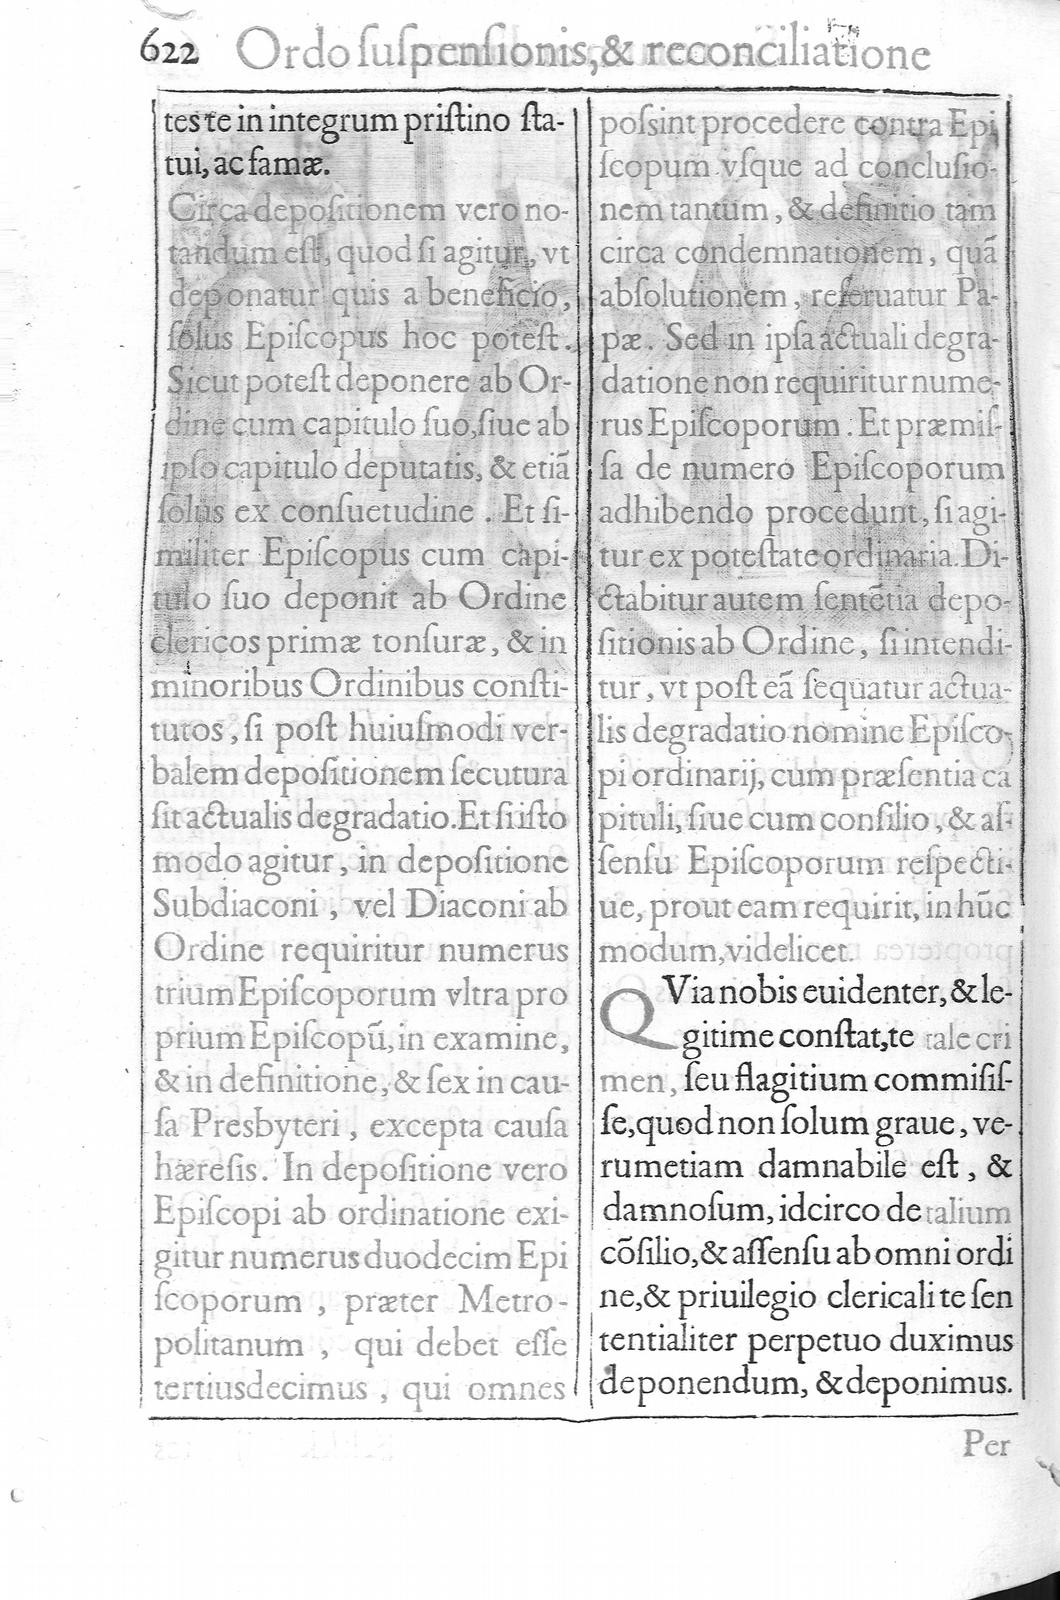 622 Ordo ſuſpenſionis, & reconciliatione
tes te in integrum priſtino ſta-
tui, ac famæ.
Circa depoſitionem vero no-
tandum eſt, quod ſi agitur, vt
deponatur quis a beneficio,
ſolus Epiſcopus hoc poteſt.
Sicut poteſt deponere ab Or-
dine cum capitulo ſuo, ſiue ab
ipſo capitulo deputatis, & etiã
ſolus ex conſuetudine. Et ſi-
militer Epiſcopus cum capi-
tulo ſuo deponit ab Ordine
clericos primæ tonſuræ, & in
minoribus Ordinibus conſti-
tutos, ſi poſt huiuſmodi ver-
balem depoſitionem ſecutura
ſit actualis degradatio. Et ſi iſto
modo agitur, in depoſitione
Subdiaconi, vel Diaconi ab
Ordine requiritur numerus
trium Epiſcoporum vltra pro
prium Epiſcopũ, in examine,
& in definitione, & ſex in cau-
ſa Presbyteri, excepta cauſa
hæreſis. In depoſitione vero
Epiſcopi ab ordinatione exi-
gitur numerus duodecim Epi
ſcoporum, præter Metro-
politanum, qui debet eſſe
tertiusdecimus, qui omnes
poſsint procedere contra Epi
ſcopum vſque ad concluſio-
nem tantum, & definitio tam
circa condemnationem, quã
abſolutionem, reſeruatur Pa-
pæ. Sed in ipſa actuali degra-
datione non requiritur nume-
rus Epiſcoporum. Et præmiſ-
ſa de numero Epiſcoporum
adhibendo procedunt, ſi agi-
tur ex poteſtate ordinaria. Di-
ctabitur autem ſentẽtia depo-
ſitionis ab Ordine, ſi intendi-
tur, vt poſt eã ſequatur actua-
lis degradatio nomine Epiſco-
pi ordinarij, cum præſentia ca
pituli, ſiue cum conſilio, & aſ-
ſenſu Epiſcoporum reſpecti-
ue, prout eam requirit, in hũc
modum, videlicet.
QVia nobis euidenter, & le-
gitime conſtat, te tale cri
men, ſeu flagitium commiſiſ-
ſe, quod non ſolum graue, ve-
rumetiam damnabile eſt, &
damnoſum, idcirco de talium
cõſilio, & aſſenſu ab omni ordi
ne, & priuilegio clericali te ſen
tentialiter perpetuo duximus
deponendum, & deponimus.
Per